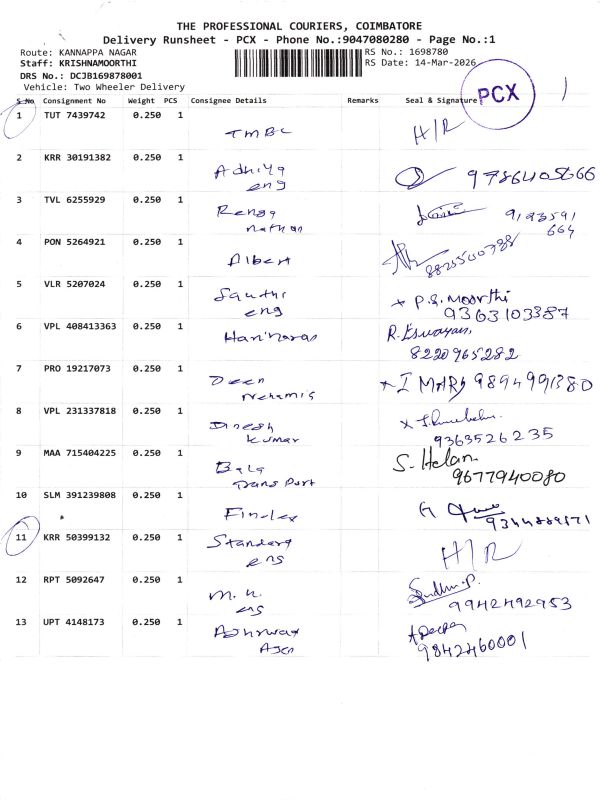 THE PROFESSIONAL COURIERS, COIMBATORE
Delivery Runsheet - PCX - Phone No.:9047080280 - Page No.:1
Route: KANNAPPA NAGAR RS No.: 1698780
Staff: KRISHNAMOORTHI RS Date: 14-Mar-2026
DRS No.: DCJB169878001
Vehicle: Two Wheeler Delivery
PCX
S.No Consignment No Weight PCS Consignee Details Remarks Seal & Signature
1 TUT 7439742 0.250 1
TMBL H/R
2 KRR 30191382 0.250 1
Adhiya 9786405666
eng
3 TVL 6255929 0.250 1
Renga
nathan 664
4 PON 5264921 0.250 1
Albert
5 VLR 5207024 0.250 1
Sauthi x P.S. Moorthi
eng 9363103387
6 VPL 408413363 0.250 1
R. Eswayan,
8220965282
7 PRO 19217073 0.250 1
Deen x I MARY 9894991380
8 VPL 231337818 0.250 1
Dinesh x
Kumar 9363526235
9 MAA 715404225 0.250 1
Bala S. Helan
Trans Port 9677940080
10 SLM 391239808 0.250 1
*
Finolex
11 KRR 50399132 0.250 1
Standard H/R
eng
12 RPT 5092647 0.250 1
M. K.
eng 9942492953
13 UPT 4148173 0.250 1
9842460001